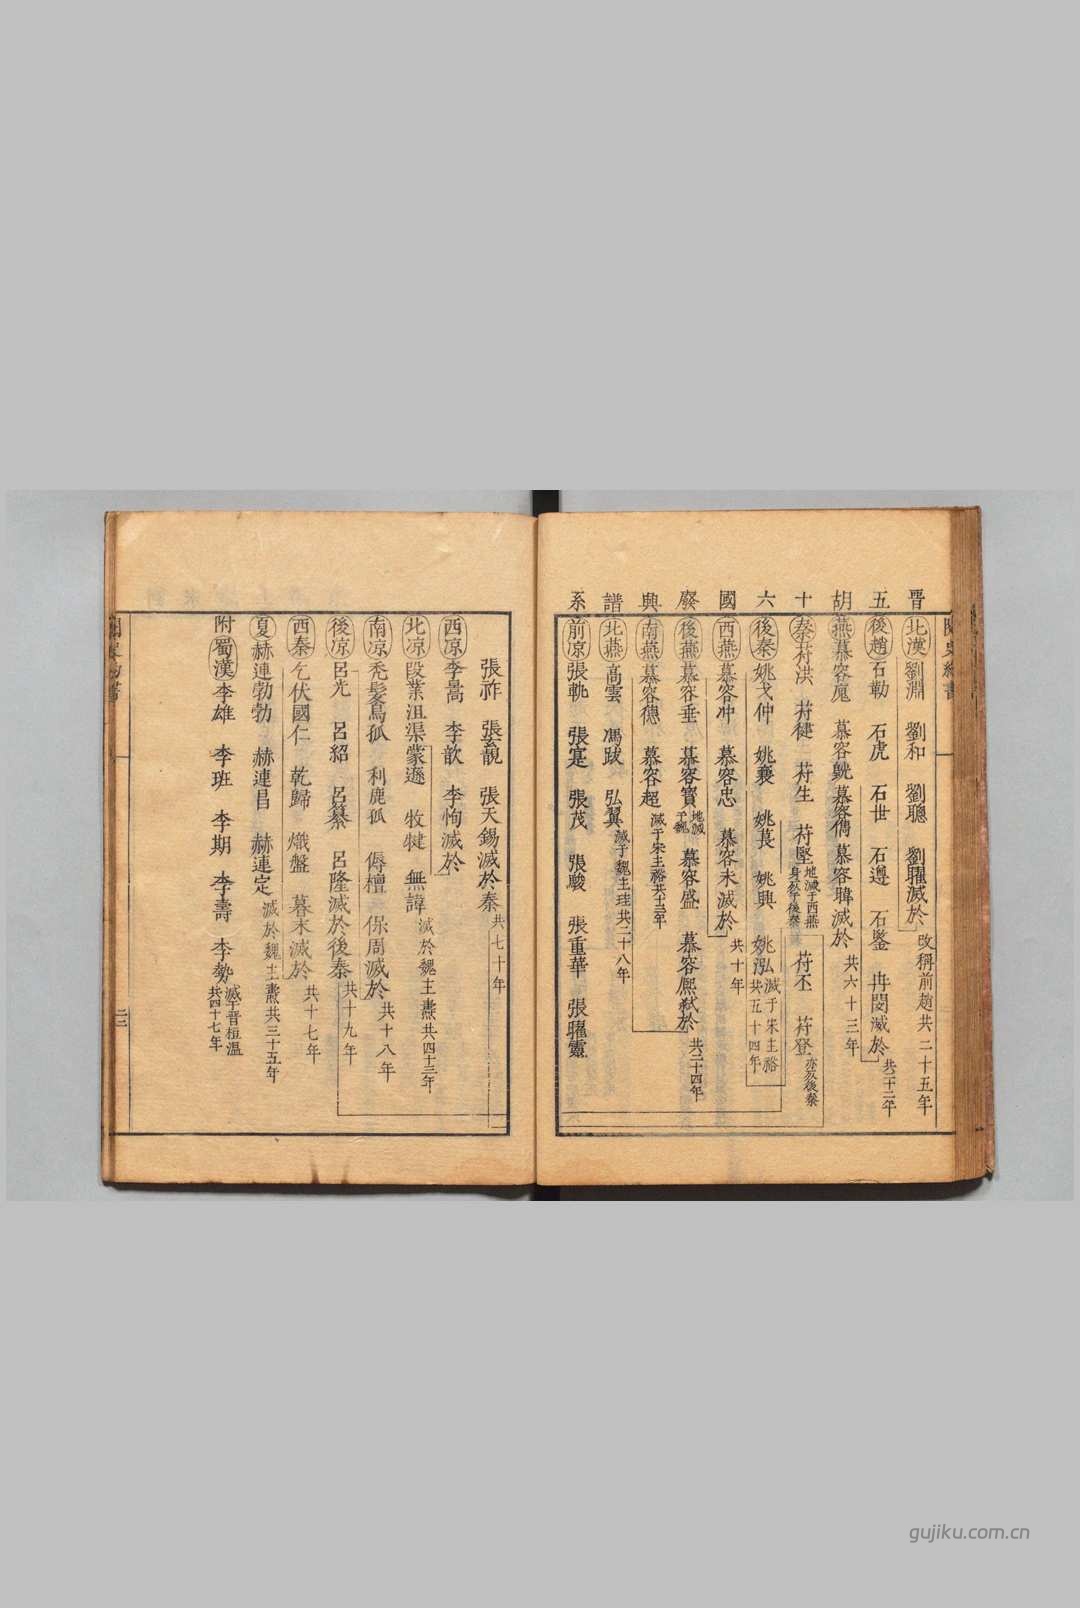 晋五胡十六國廢興譜系
北漢 劉淵 劉和 劉聰 劉曜滅於 改稱前趙共二十五年
後趙 石勒 石虎 石世 石遵 石鑒 冉閔滅於 共三十二年
燕 慕容廆 慕容皝 慕容儁 慕容暐滅於 共六十三年
秦 苻洪 苻健 苻生 苻堅 地滅于西燕身殺于後秦 苻丕 苻登 亦殺後秦
後秦 姚弋仲 姚襄 姚萇 姚興 姚泓 滅于宋主裕共五十四年
西燕 慕容冲 慕容忠 慕容永滅於 共十年
後燕 慕容垂 慕容寶 地滅于魏 慕容盛 慕容熈弑於 共二十四年
南燕 慕容德 慕容超 滅于宋主裕共十三年
北燕 高雲 馮跋 弘翼 滅于魏主珪共二十八年
前凉 張軌 張寔 張茂 張駿 張重華 張曜靈
張祚 張玄靚 張天錫滅於秦 共七十年
西凉 李暠 李歆 李恂滅於
北凉 段業 沮渠蒙遜 牧犍 無諱 滅於魏主燾共四十三年
南凉 禿髮烏孤 利鹿孤 傉檀 保周滅於 共十八年
後凉 呂光 呂紹 呂纂 呂隆滅於後秦 共十九年
西秦 乞伏國仁 乾歸 熾盤 暮末滅於 共十七年
夏 赫連勃勃 赫連昌 赫連定 滅於魏主燾共三十五年
附蜀漢 李雄 李班 李期 李壽 李勢 滅于晋桓溫共四十七年
gujiku.com.cn